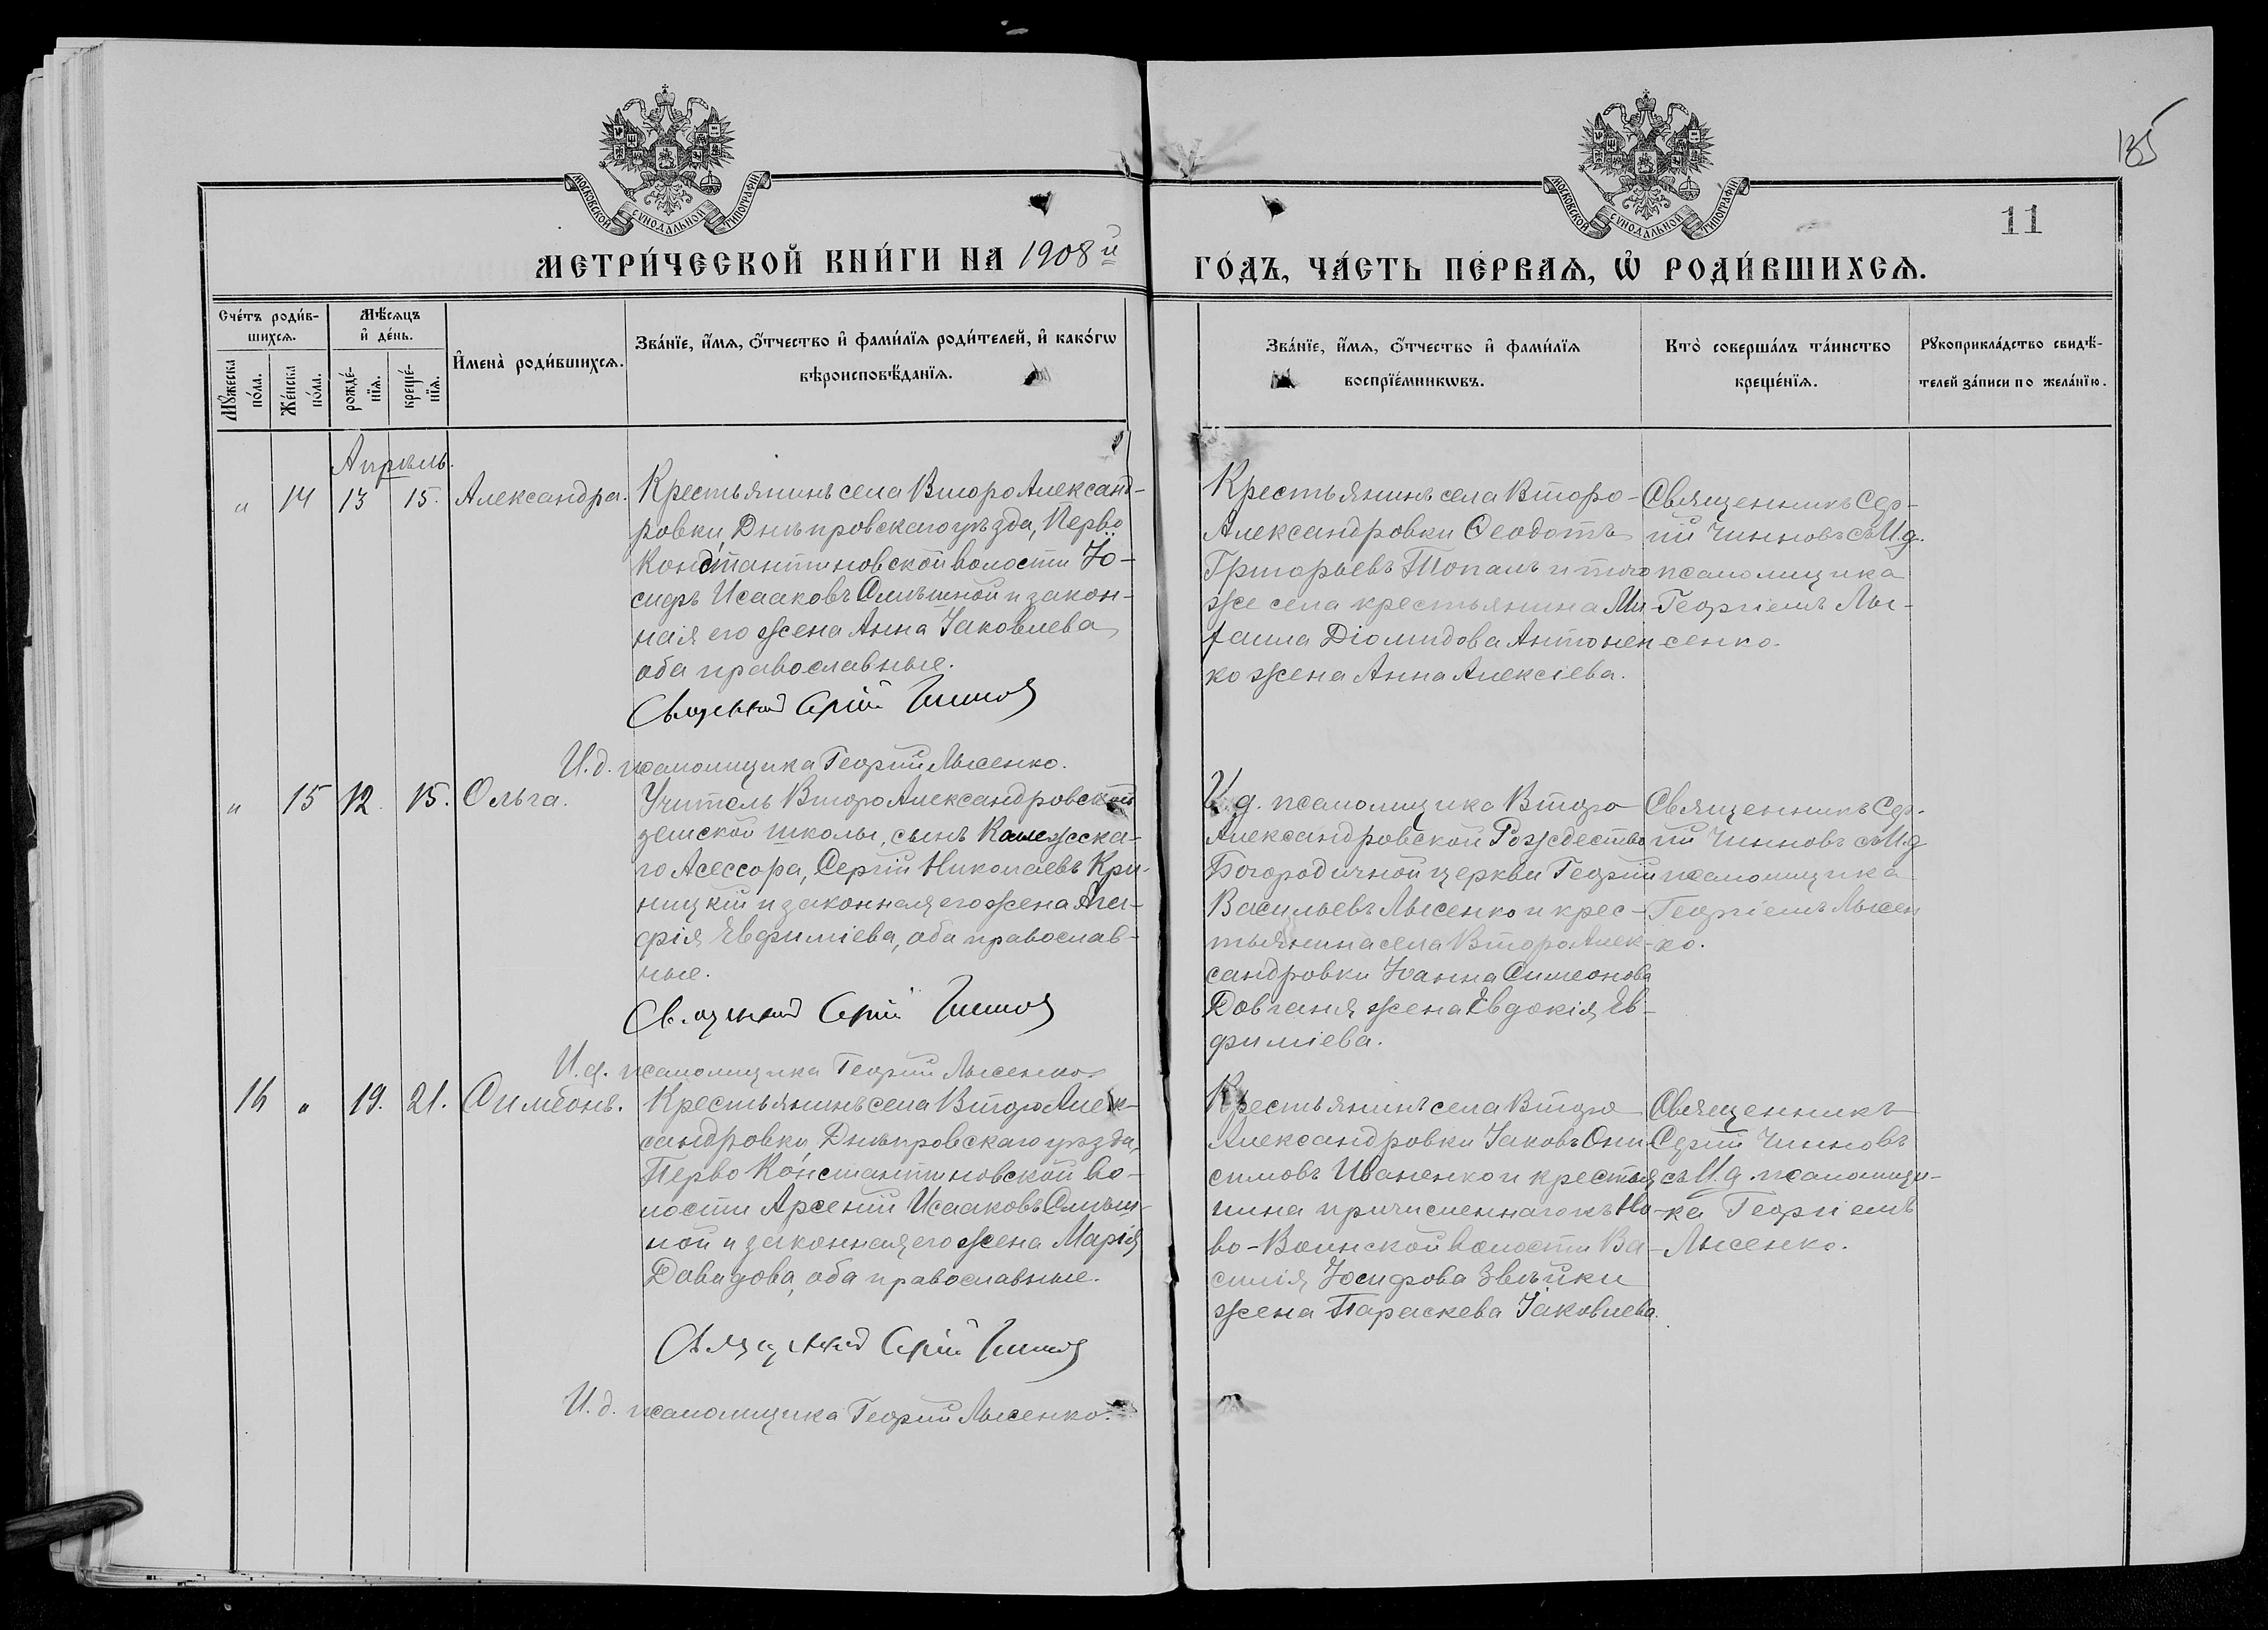 185
МОСКОВСКОЙ СѴНОДАЛЬНОЙ ТИПОГРАФІИ
МОСКОВСКОЙ СѴНОДАЛЬНОЙ ТИПОГРАФІИ
11
МЕТРИ́ЧЕСКОЙ КНИ́ГИ НА 1908й
ГО́ДЪ, ЧА́СТЬ ПЕ́РВАѦ, Ѡ҆ РОДИ́ВШИХСѦ.
Сче́тъ роди́в-
шихсѧ.
Мꙋ́жеска
по́ла.
Же́нска
по́ла.
Мѣ́сѧцъ
и҆ де́нь.
рожде́-
нїѧ.
креще́-
нїѧ.
И҆мена̀ роди́вшихсѧ.
Зва́нїе, и҆́мѧ, ѻ҆́тчество и҆ фами́лїѧ роди́телей, и҆ како́гѡ
вѣроисповѣ́данїѧ.
Зва́нїе, и҆́мѧ, ѻ҆́тчество и҆ фами́лїѧ
воспрїе́мникѡвъ.
Кто̀ соверша́лъ та́инство
креще́нїѧ.
Рꙋкоприкла́дство свидѣ́-
телей за́писи по жела́нїю.
Апрѣль.
" 14 13 15. Александра.
Крестьянинъ села Второ Александ-
ровки, Днѣпровскаго уѣзда, Перво
Константиновской волости Іо-
сифъ Исааковъ Смѣшной и закон-
ная его жена Анна Іаковлева
оба православные.
Священникъ Сергій Чинновъ
И.д. псаломщика Георгій Лысенко.
Крестьянинъ села Второ-
Александровки Ѳеодотъ
Григорьевъ Топалъ и того
же села крестьянина Ми-
хаила Діомидова Антонен
ко жена Анна Алексіева.
Священникъ Сер-
гій Чинновъ съ И.д.
псаломщика
Георгіемъ Лы-
сенко.
" 15 12. 15. Ольга.
Учитель Второ Александровской
земской школы, сынъ Коллежска-
го Асессора, Сергій Николаевъ Кри-
ницкій и законная его жена Ага-
фія Евфиміева, оба православ-
ные.
Священникъ Сергій Чинновъ
И.д. псаломщика Георгій Лысенко.
И д. псаломщика Второ
Александровской Рождество
Богородичной церкви Георгій
Васильевъ Лысенко и крес-
тьянина села Второ Алек-
сандровки Іоанна Симеонова
Довганя жена Евдокія Ев-
фиміева.
Священникъ Сер-
гій Чинновъ съ И.д
псаломщика
Георгіемъ Лысен
ко.
16 " 19. 21. Симеонъ.
Крестьянинъ села Второ Алек-
сандровки, Днѣпровскаго уѣзда,
Перво Константиновской во-
лости Арсеній Исааковъ Смѣш-
ной и законная его жена Марія
Давидова, оба православные.
Священникъ Сергій Чинновъ
И.д. псаломщика Георгій Лысенко.
Крестьянинъ села Второ
Александровки Іаковъ Они
симовъ Иваненко и крестья
нина причисленнаго къ Но
во-Воинской волости Ва-
силія Іосифова Звѣйки
жена Параскева Іаковлева.
Священникъ
Сергій Чинновъ
съ И.д. псаломщи-
ка Георгіемъ
Лысенко.